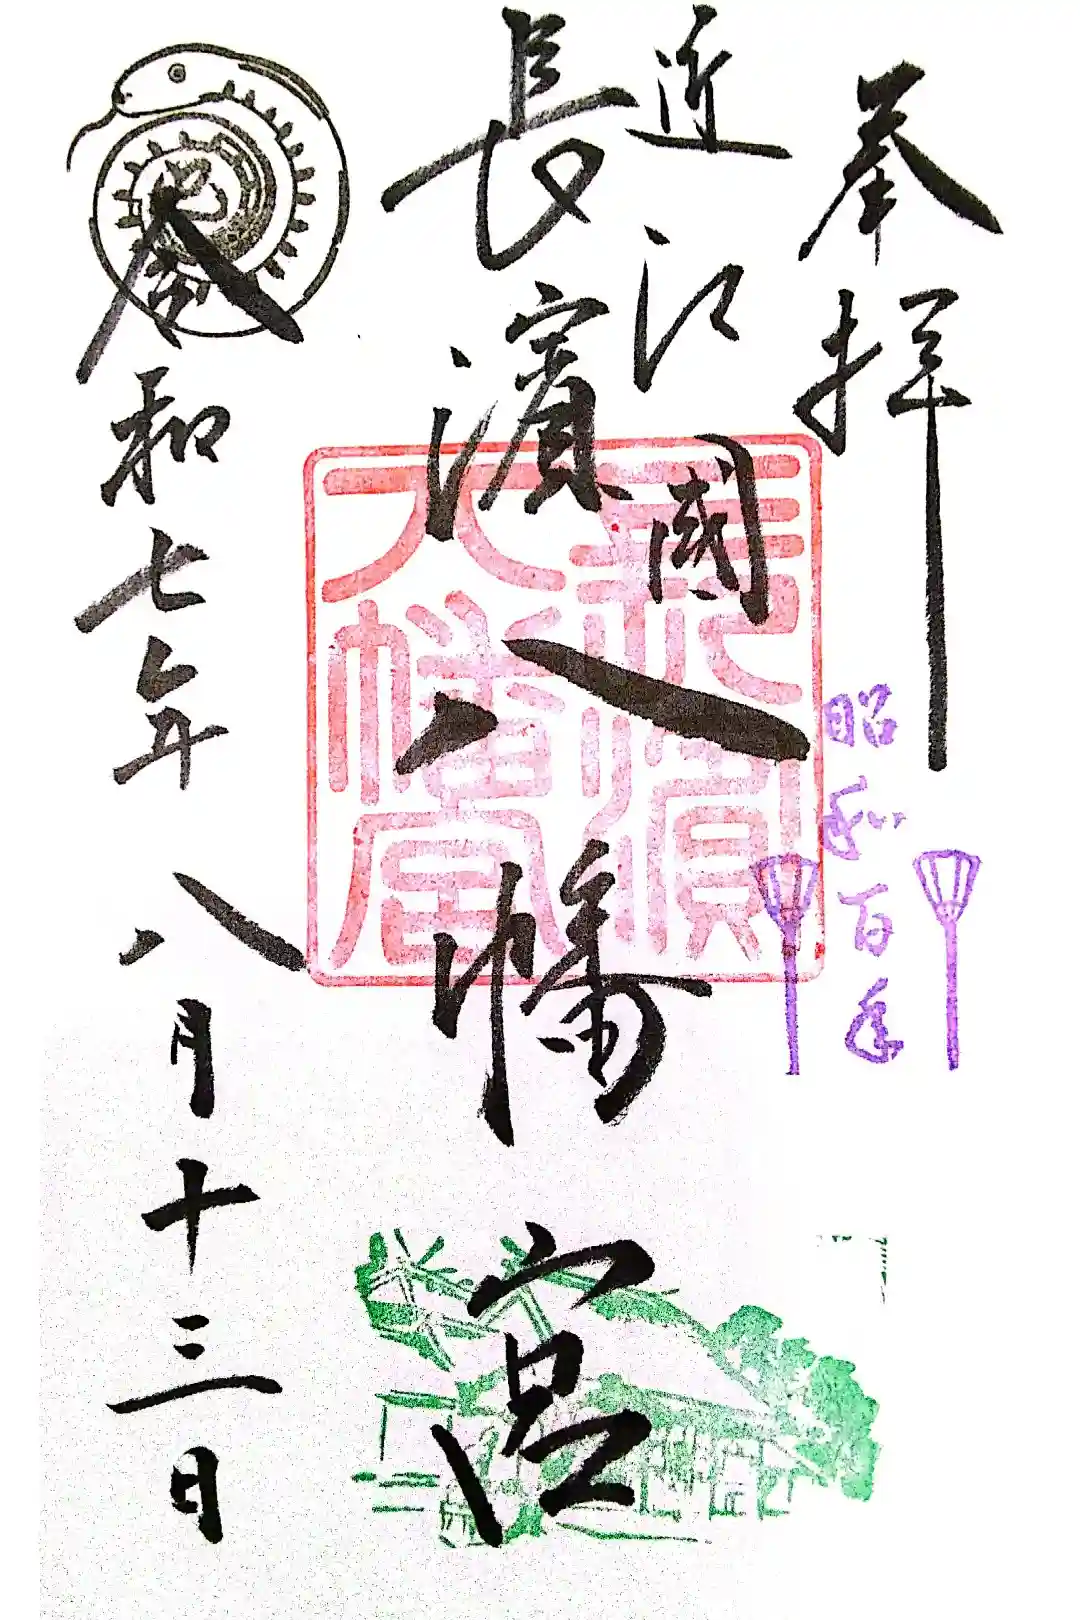 奉拝
昭和百年
近江國
長濱八幡宮
長濱八幡宮
巳
令和七年八月十三日